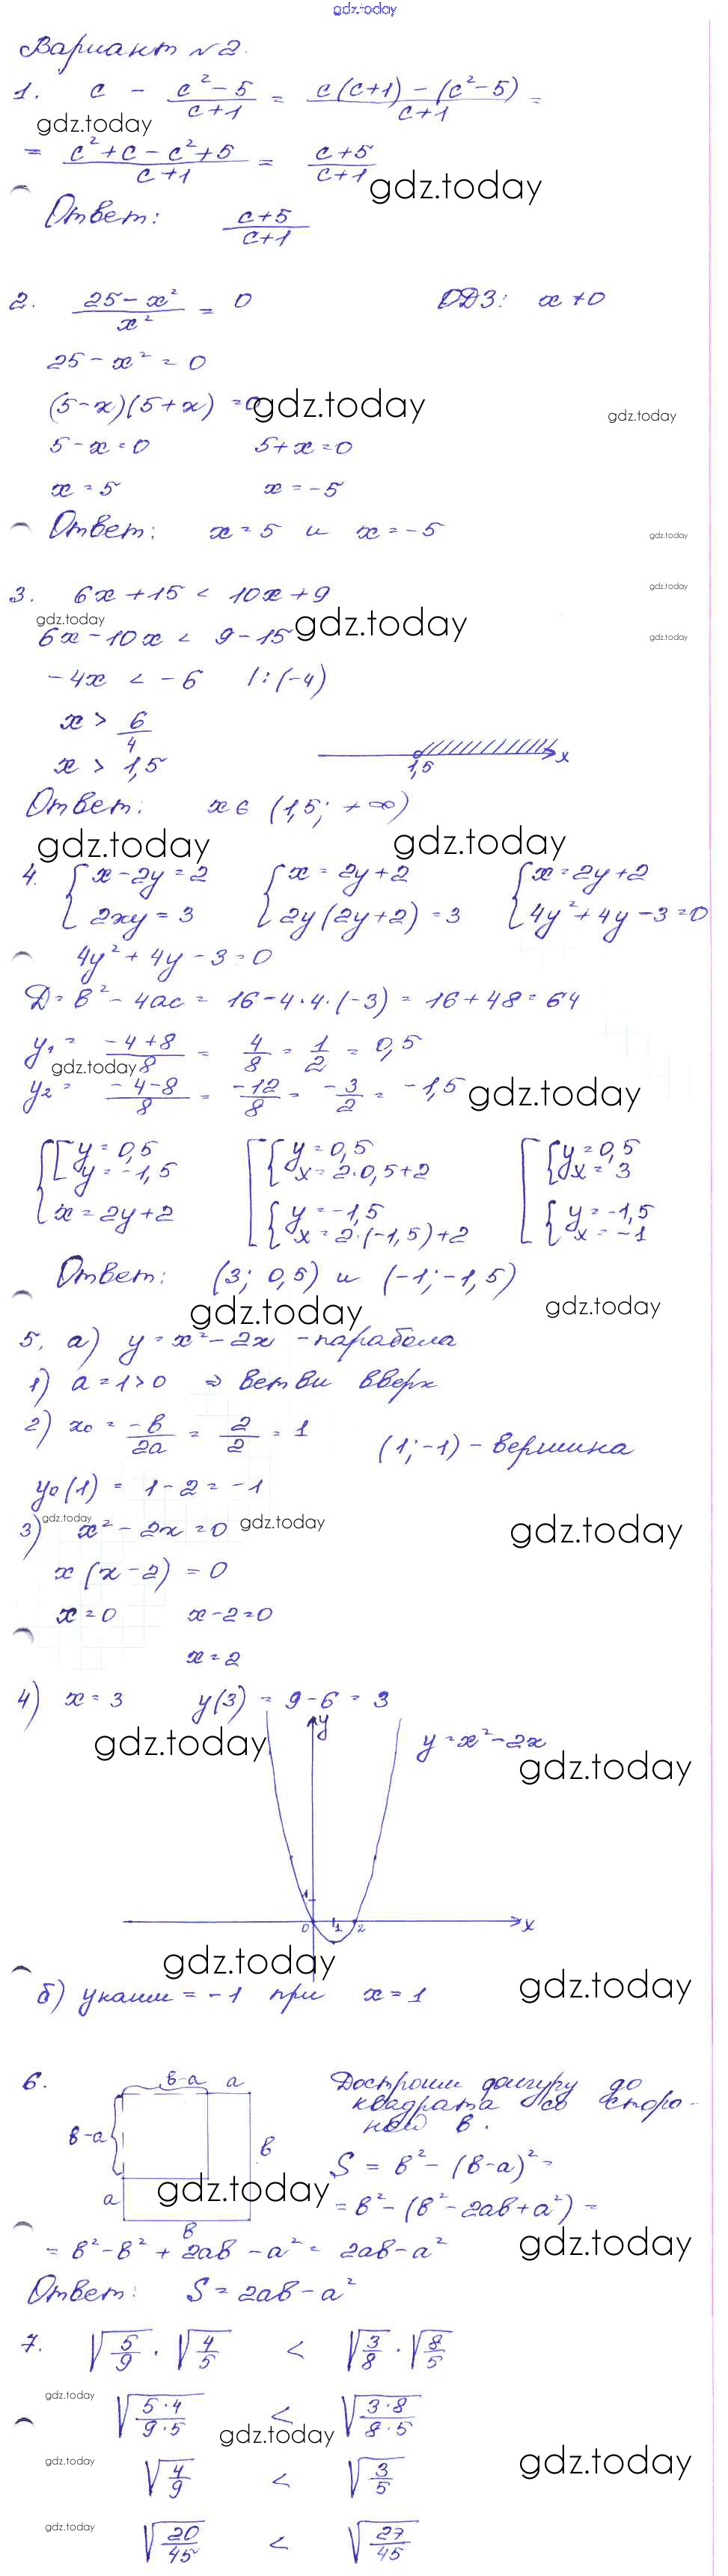 gdz.today
Вариант №2.
1. c - (c² - 5)/(c+1) = (c(c+1) - (c²-5))/(c+1) =
gdz.today
= (c² + c - c² + 5)/(c+1) = (c+5)/(c+1)
gdz.today
Ответ: (c+5)/(c+1)
2. (25 - x²)/x² = 0 ОДЗ: x ≠ 0
25 - x² = 0
(5-x)(5+x) = 0
gdz.today
gdz.today
5 - x = 0 5 + x = 0
x = 5 x = -5
Ответ: x = 5 и x = -5
gdz.today
3. 6x + 15 < 10x + 9
gdz.today
gdz.today
6x - 10x < 9 - 15
gdz.today
gdz.today
-4x < -6 |:(-4)
x > 6/4
x > 1,5
1,5 x
Ответ: x ∈ (1,5; +∞)
gdz.today gdz.today
4. { x - 2y = 2 { x = 2y + 2 { x = 2y + 2
{ 2xy = 3 { 2y(2y+2) = 3 { 4y² + 4y - 3 = 0
4y² + 4y - 3 = 0
D = b² - 4ac = 16 - 4·4·(-3) = 16 + 48 = 64
y₁ = (-4+8)/8 = 4/8 = 1/2 = 0,5
gdz.today
y₂ = (-4-8)/8 = -12/8 = -3/2 = -1,5
gdz.today
{ [ y = 0,5 [ { y = 0,5 [ { y = 0,5
y = -1,5 x = 2·0,5+2 x = 3
x = 2y + 2 { y = -1,5 { y = -1,5
x = 2·(-1,5)+2 x = -1
Ответ: (3; 0,5) и (-1; -1,5)
gdz.today gdz.today
5. а) y = x² - 2x - парабола
1) a = 1 > 0 ⇒ ветви вверх
2) x₀ = -b/2a = 2/2 = 1
(1; -1) - вершина
y₀(1) = 1 - 2 = -1
gdz.today gdz.today gdz.today
3) x² - 2x = 0
x(x-2) = 0
x = 0 x - 2 = 0
x = 2
4) x = 3 y(3) = 9 - 6 = 3
gdz.today
y
y = x² - 2x
gdz.today
1
0 1 2 x
gdz.today
gdz.today
б) y наим = -1 при x = 1
6. b-a a
Достроим фигуру до
квадрата со сторо-
ной b.
b-a b
S = b² - (b-a)² =
a
gdz.today
= b² - (b² - 2ab + a²) =
b
gdz.today
= b² - b² + 2ab - a² = 2ab - a²
Ответ: S = 2ab - a²
7. √(5/9) · √(4/5) < √(3/8) · √(8/5)
gdz.today
√((5·4)/(9·5)) < √((3·8)/(8·5))
gdz.today
gdz.today
gdz.today
√(4/9) < √(3/5)
gdz.today
√(20/45) < √(27/45)